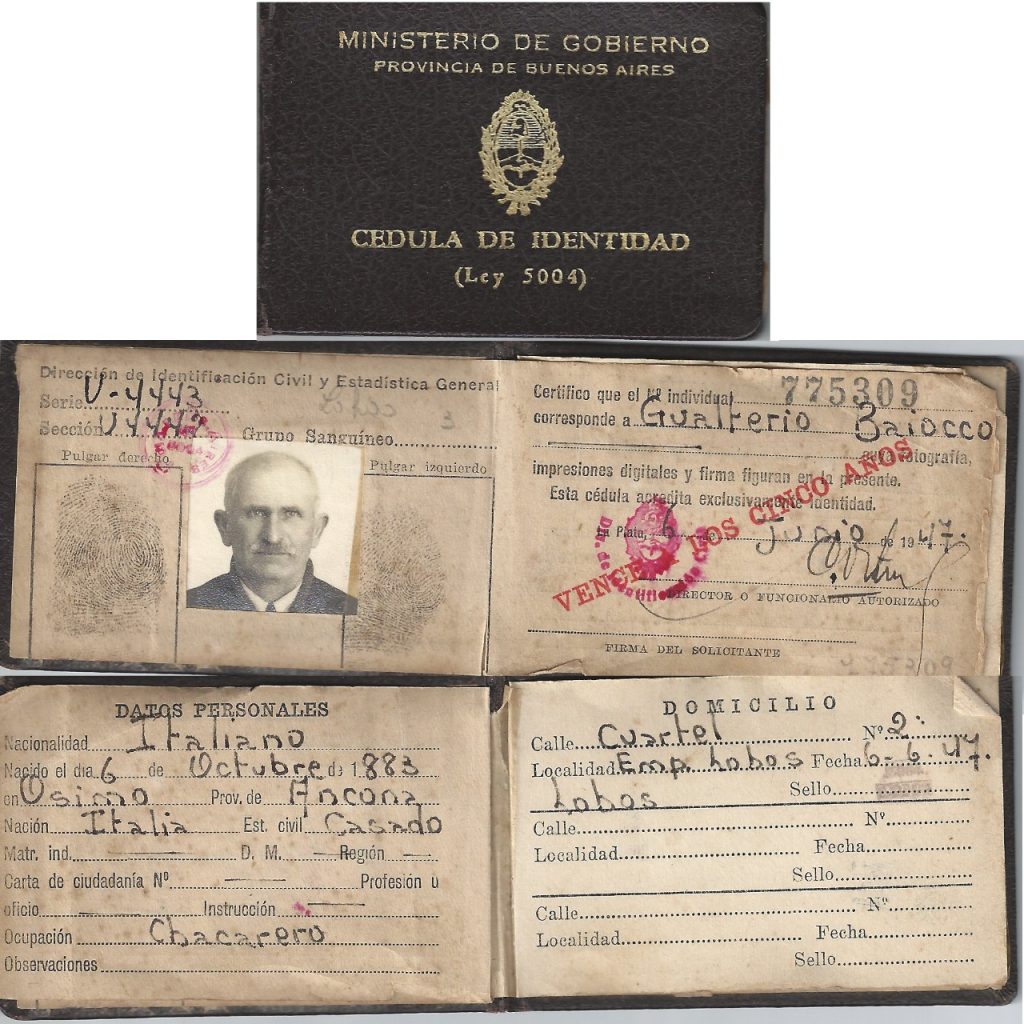 MINISTERIO DE GOBIERNO
PROVINCIA DE BUENOS AIRES
CEDULA DE IDENTIDAD
(Ley 5004)
Dirección de Identificación Civil y Estadística General
Serie V-4443
Sección V4443
Grupo Sanguíneo 3
Pulgar derecho
Pulgar izquierdo
Certifico que el Nº individual 775309
corresponde a Gualterio Baiocco
cuya fotografía,
impresiones digitales y firma figuran en la presente.
Esta cédula acredita exclusivamente identidad.
VENCE A LOS CINCO AÑOS
La Plata, 6 de Junio de 1947.
DIRECTOR O FUNCIONARIO AUTORIZADO
FIRMA DEL SOLICITANTE
775309
DATOS PERSONALES
Nacionalidad Italiano
Nacido el día 6 de Octubre de 1883
en Osimo Prov. de Ancona
Nación Italia Est. civil Casado
Matr. ind. D. M. Región
Carta de ciudadanía Nº Profesión u
oficio Instrucción
Ocupación Chacarero
Observaciones
DOMICILIO
Calle Cuartel Nº 2.
Localidad Emp. Lobos Fecha 6-6-47.
Lobos Sello
Calle Nº
Localidad Fecha
Sello
Calle Nº
Localidad Fecha
Sello